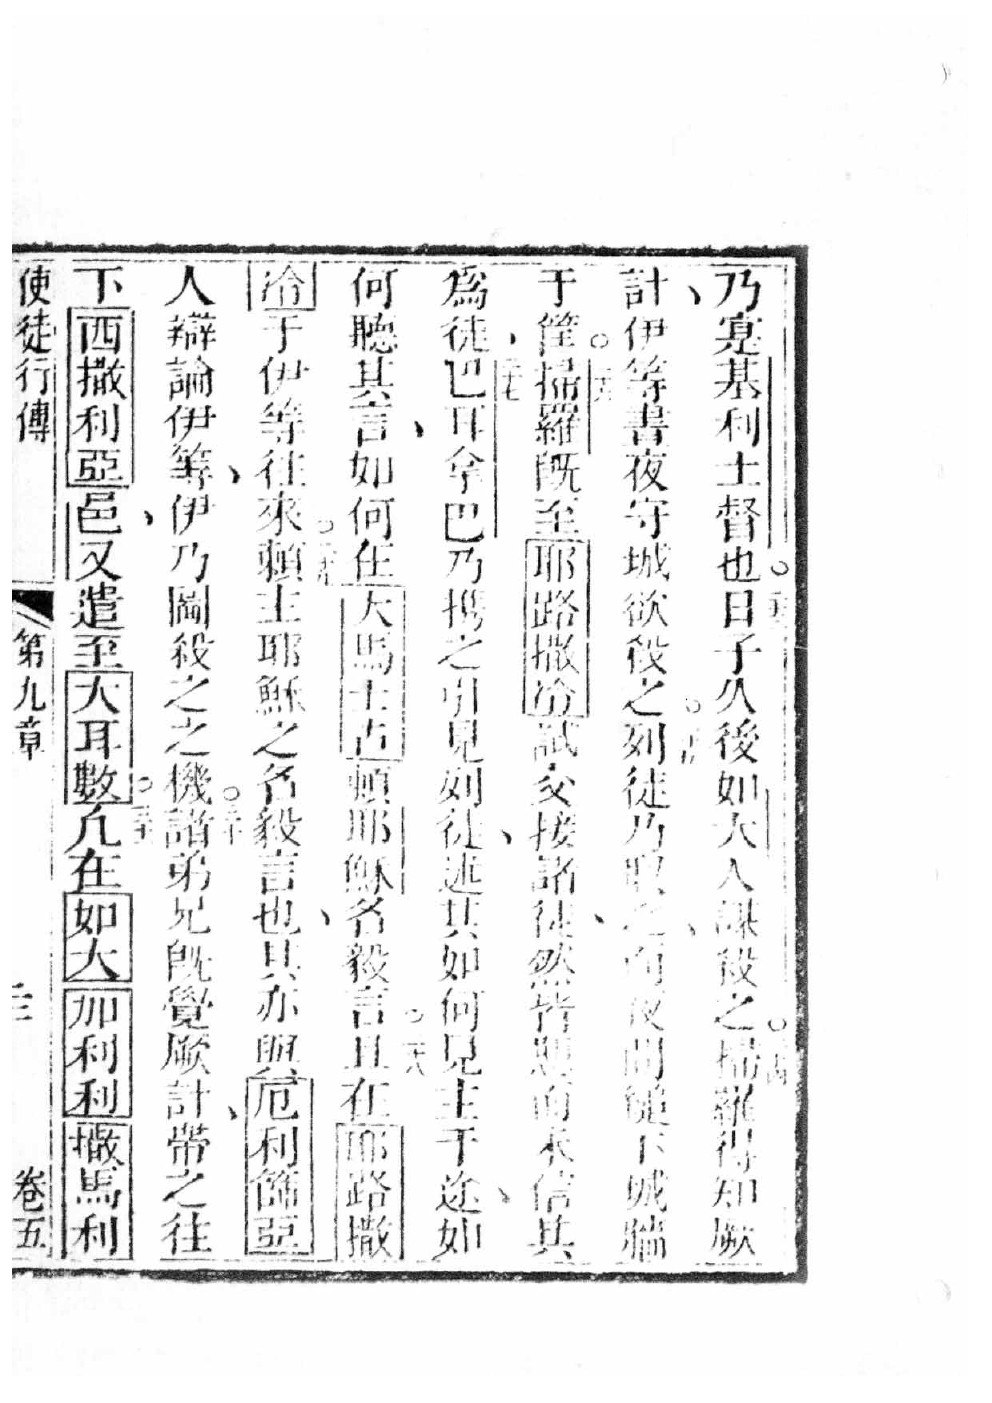 乃寔基利士督也○二十三日子久後如大人謀殺之○二十四掃羅得知厥
計、伊等晝夜守城欲殺之○二十五列徒乃取之、而夜間縋下城牆
于筐○二十六掃羅既至耶路撒冷試交接諸徒、然皆懼而未信其
為徒、二十七巴耳拿巴乃携之引見列徒、述其如何見主于途、如
何聽其言、如何在大馬士古頼耶穌名毅言○二十八且在耶路撒
冷于伊等往來○二十九頼主耶穌之名毅言也、其亦與厄利篩亞
人辯論伊等、伊乃圖殺之之機○三十諸弟兄既覺厥計、帶之往
下西撒利亞邑、又遣至大耳數○三十一凢在如大加利利撒馬利
使徒行傳 第九章 卷五